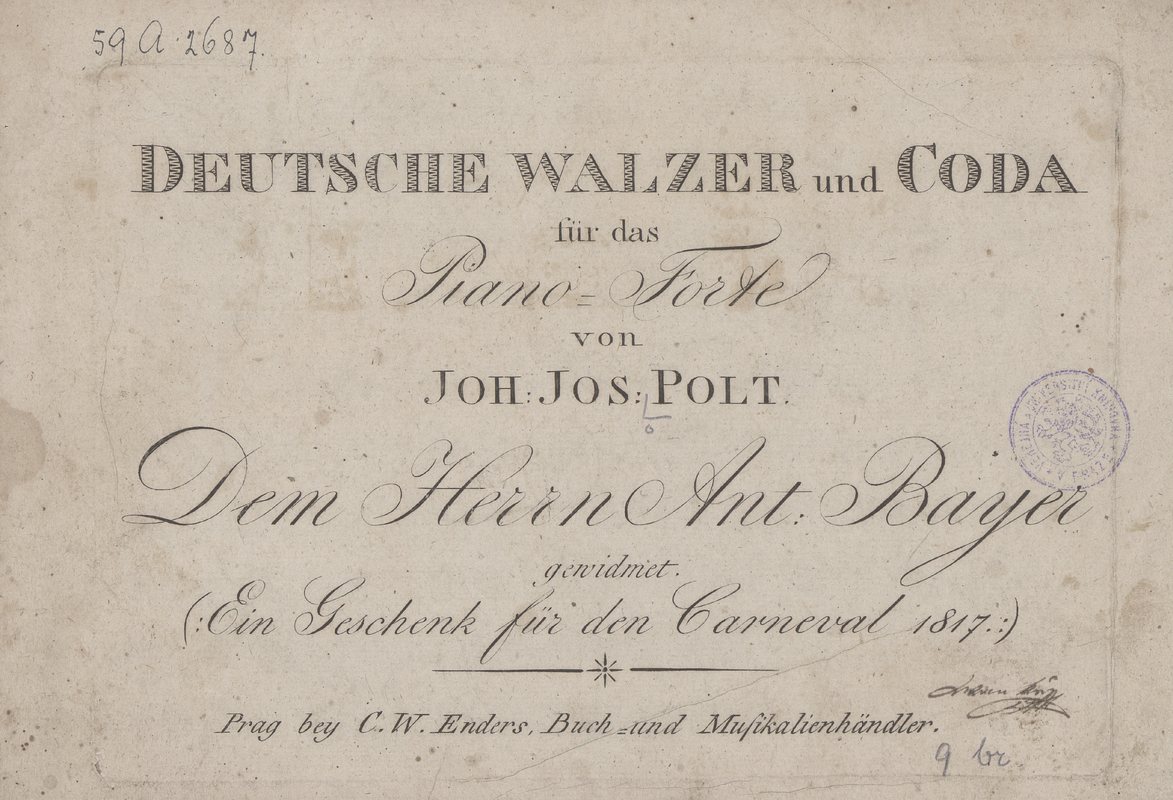 59 A 2687.
DEUTSCHE WALZER und CODA
für das
Piano=Forte
von
JOH: JOS: POLT.
Dem Herrn Ant: Bayer
gewidmet.
(:Ein Geschenk für den Carneval 1817.:)
Prag bey C. W. Enders, Buch=und Muſikalienhändler.
9 br.